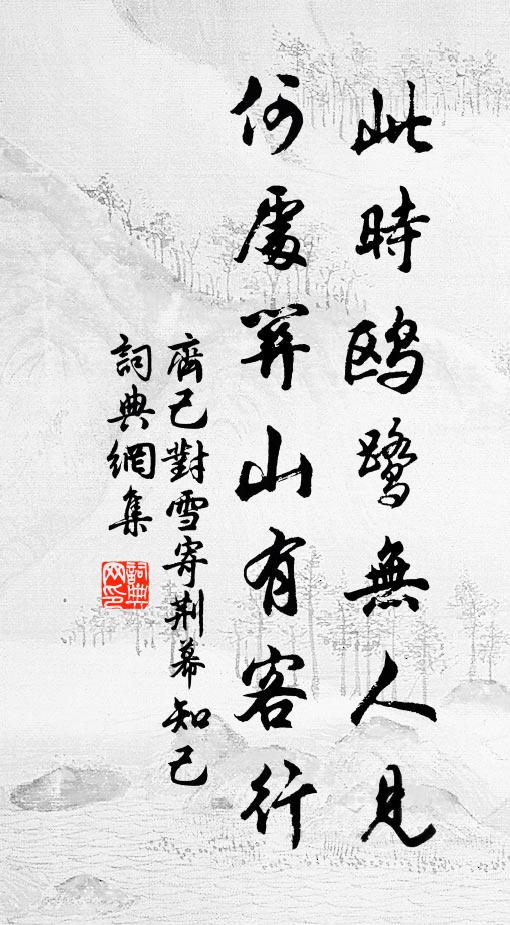 此時鷗鷺無人見
何處關山有客行
齊己對雪寄荊幕知己
詞典網集
詞典
网印